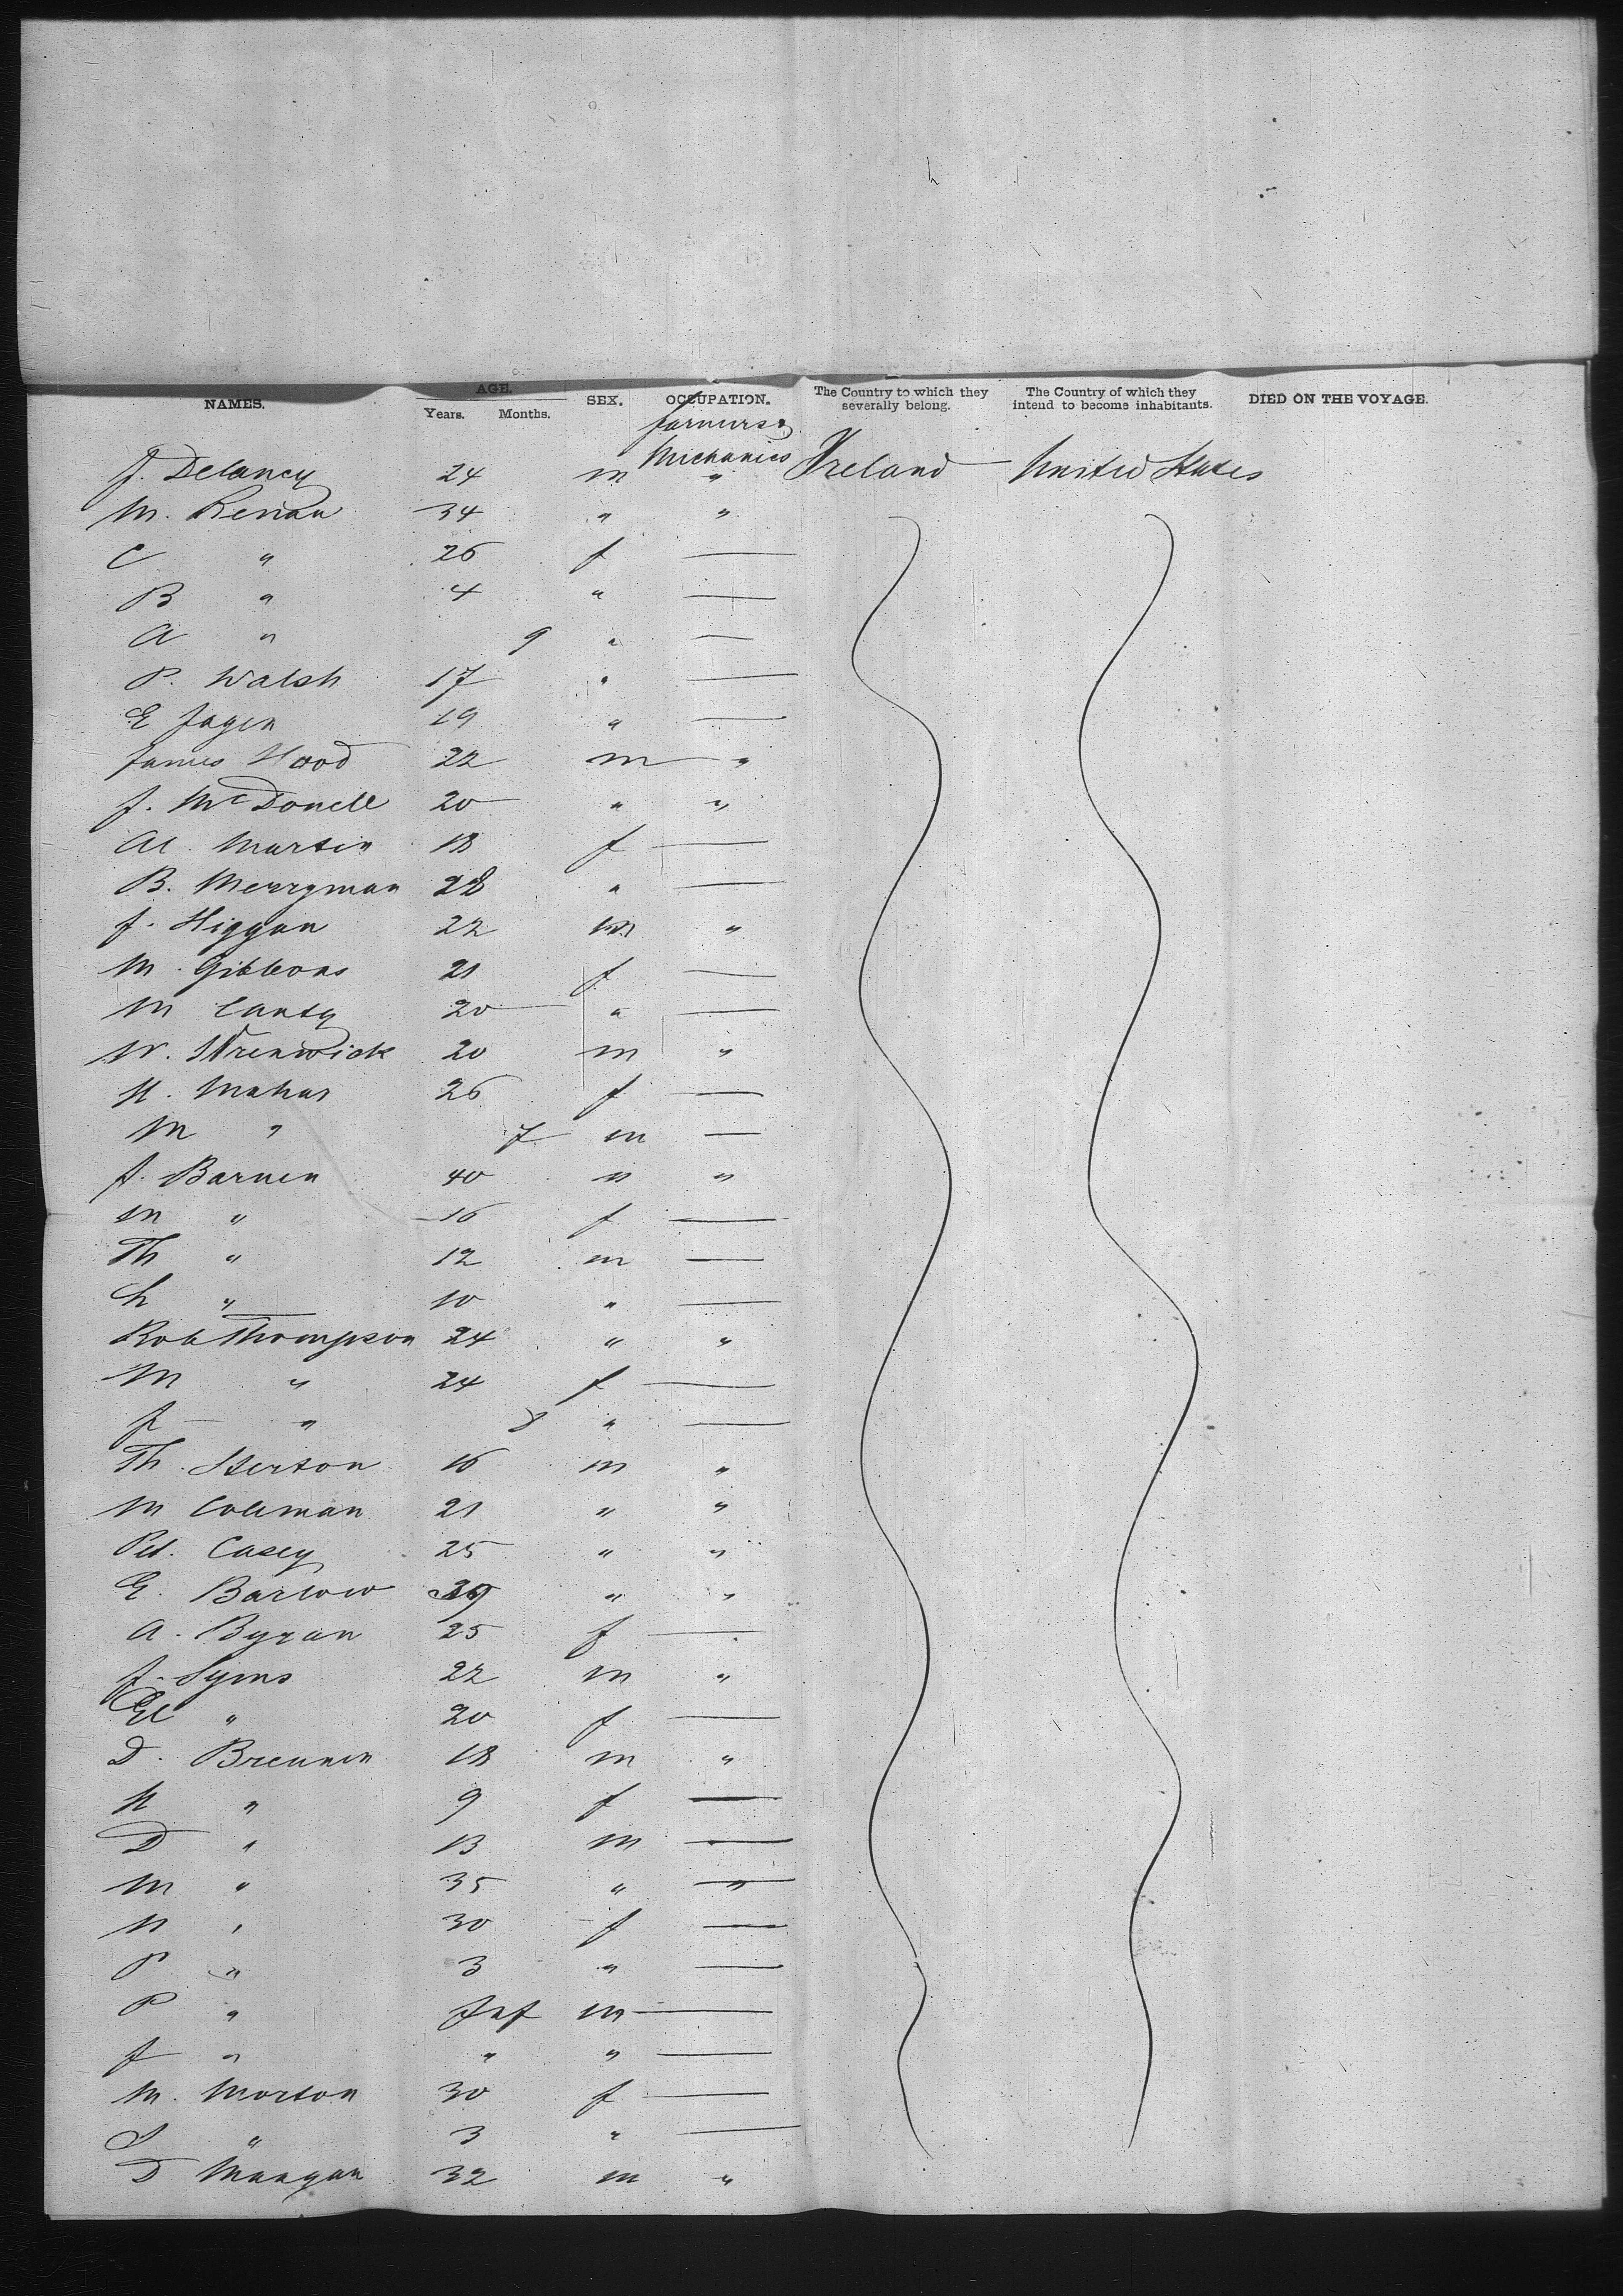 NAMES. AGE. Years. Months. SEX. OCCUPATION. The Country to which they severally belong. The Country of which they intend to become inhabitants. DIED ON THE VOYAGE.
farmers &
Mechanics
J. Delancy 24 m " Ireland United States
M. Renau 34 " "
C " 26 f —
B " 4 " —
A " 9 " —
P. Walsh 17 " —
E Fagen 19 " —
James Hood 22 m "
J. McDonell 20 " "
Al. Martin 18 f —
B. Merryman 28 " —
J. Higgan 22 m "
M. Gibbons 21 f —
M Canty 20 " —
W. 20 m "
H. Mahar 26 f —
M " 7 m —
J. Barnen 40 " "
M " 16 f —
Th " 12 m —
Ch " 10 " —
Rob Thompson 24 " "
M " 24 f —
J " 8 " —
Th. Sterton 16 m "
M Coleman 21 " "
Pet. Casey 25 " "
E. Barlow 39 " "
A. Byran 25 f —
J. Syms 22 m "
El " 20 f —
D. Brennen 18 m "
H " 9 f —
D " 13 m —
M " 35 " "
N " 30 f —
P " 3 " —
P " Inf m —
J " " " —
M. Morton 30 f —
S " 3 " —
D Mangan 32 m "